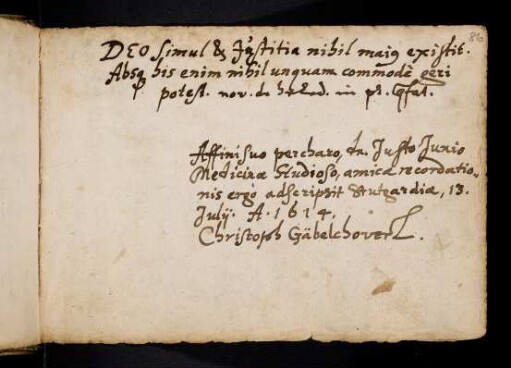 86
DEO simul & Justitia nihil maiꝰ existit.
Absq his enim nihil unquam commodè geri
potest. nov. de in pr.
Affini suo percharo, dn. Justo Junio
Medicinæ studioso, amicæ recordatio-
nis ergò adscripsit Stutgardiæ, 13.
Julij. A. 1614.
Christoph Gäbelchover